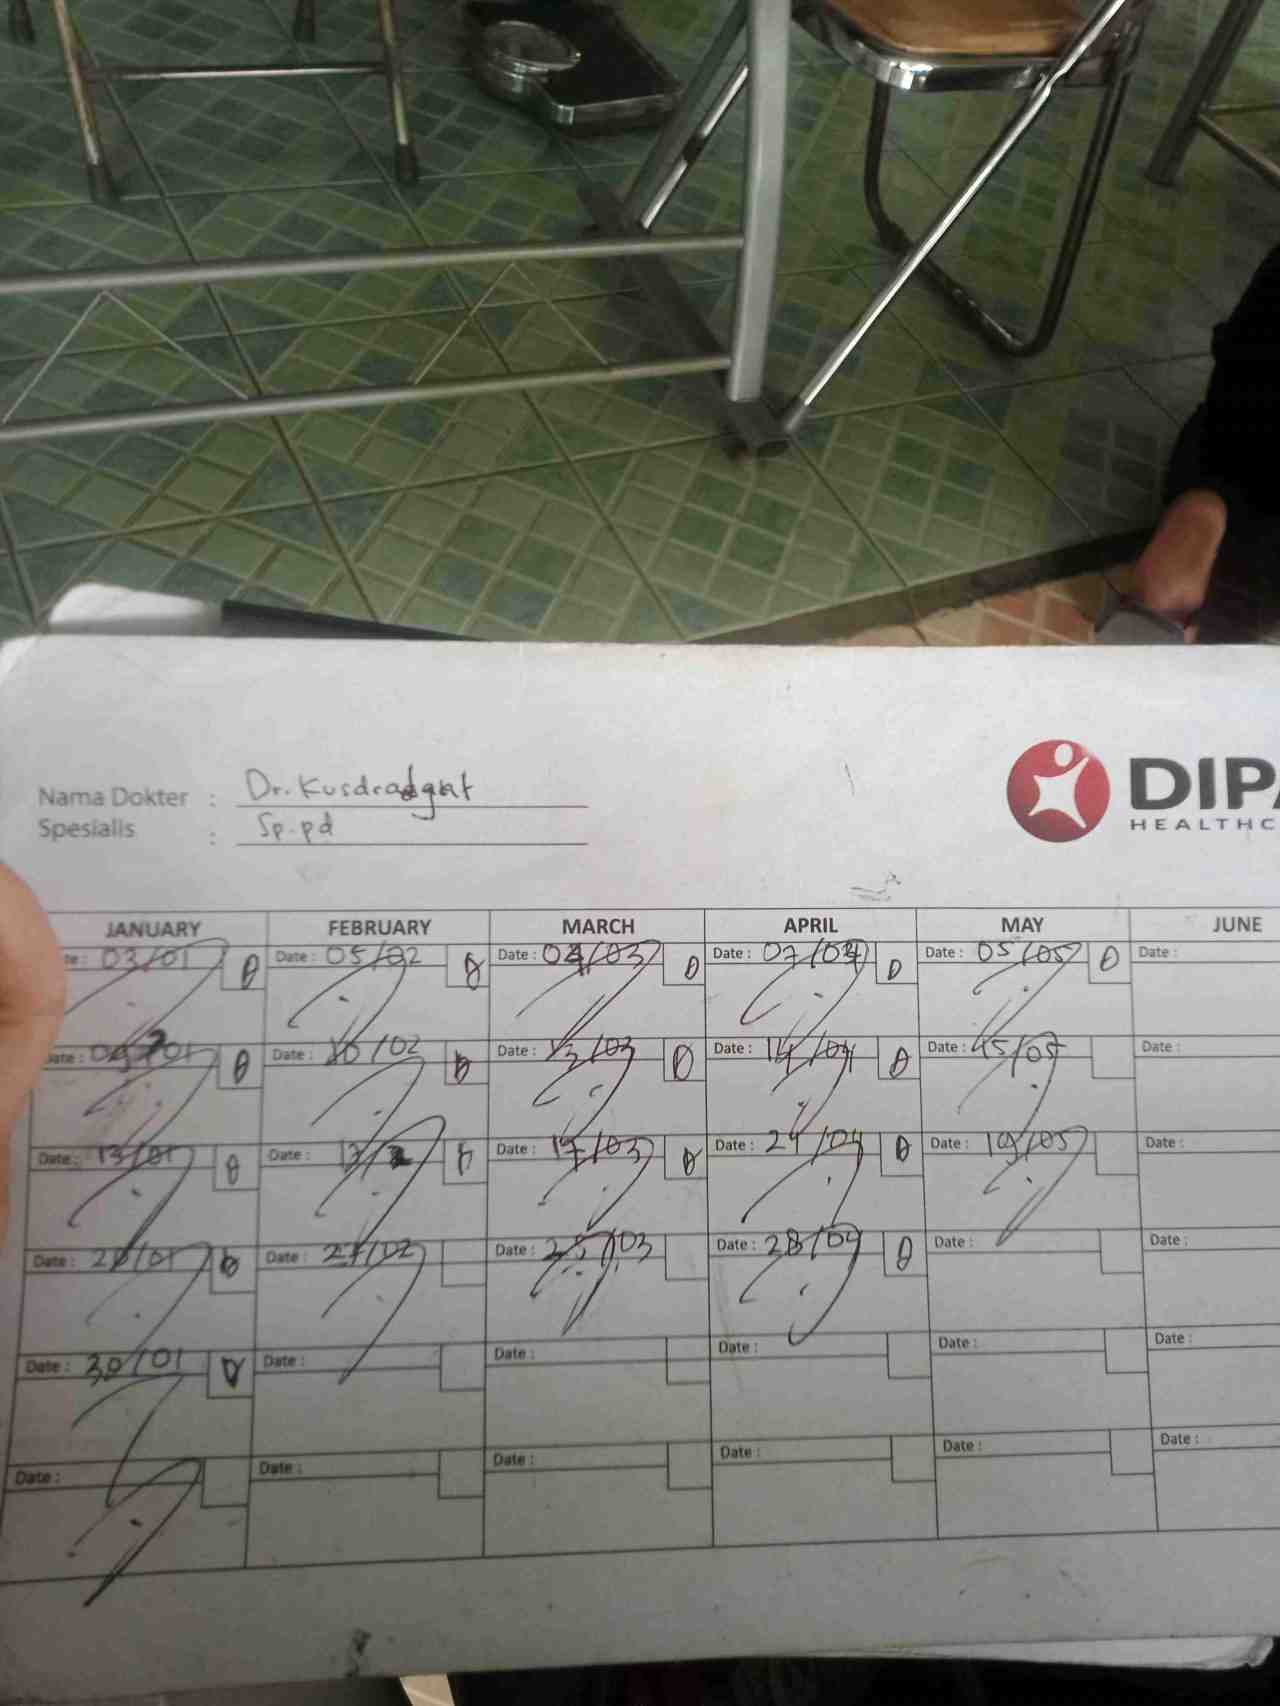 Nama Dokter : Dr. Kusdradgat
Spesialis : Sp.pd
DIPA
HEALTHC
JANUARY FEBRUARY MARCH APRIL MAY JUNE
te: 03/01 Date: 05/02 Date: 03/03 Date: 07/04 Date: 05/05 Date:
Date: Date: 10/02 Date: 13/03 Date: 14/04 Date: 15/05 Date:
Date: 13/01 Date: Date: 17/03 Date: 24/04 Date: 19/05 Date:
Date: 20/01 Date: 27/02 Date: 25/03 Date: 28/04 Date: Date:
Date: 30/01 Date: Date: Date: Date: Date:
Date: Date: Date: Date: Date: Date: